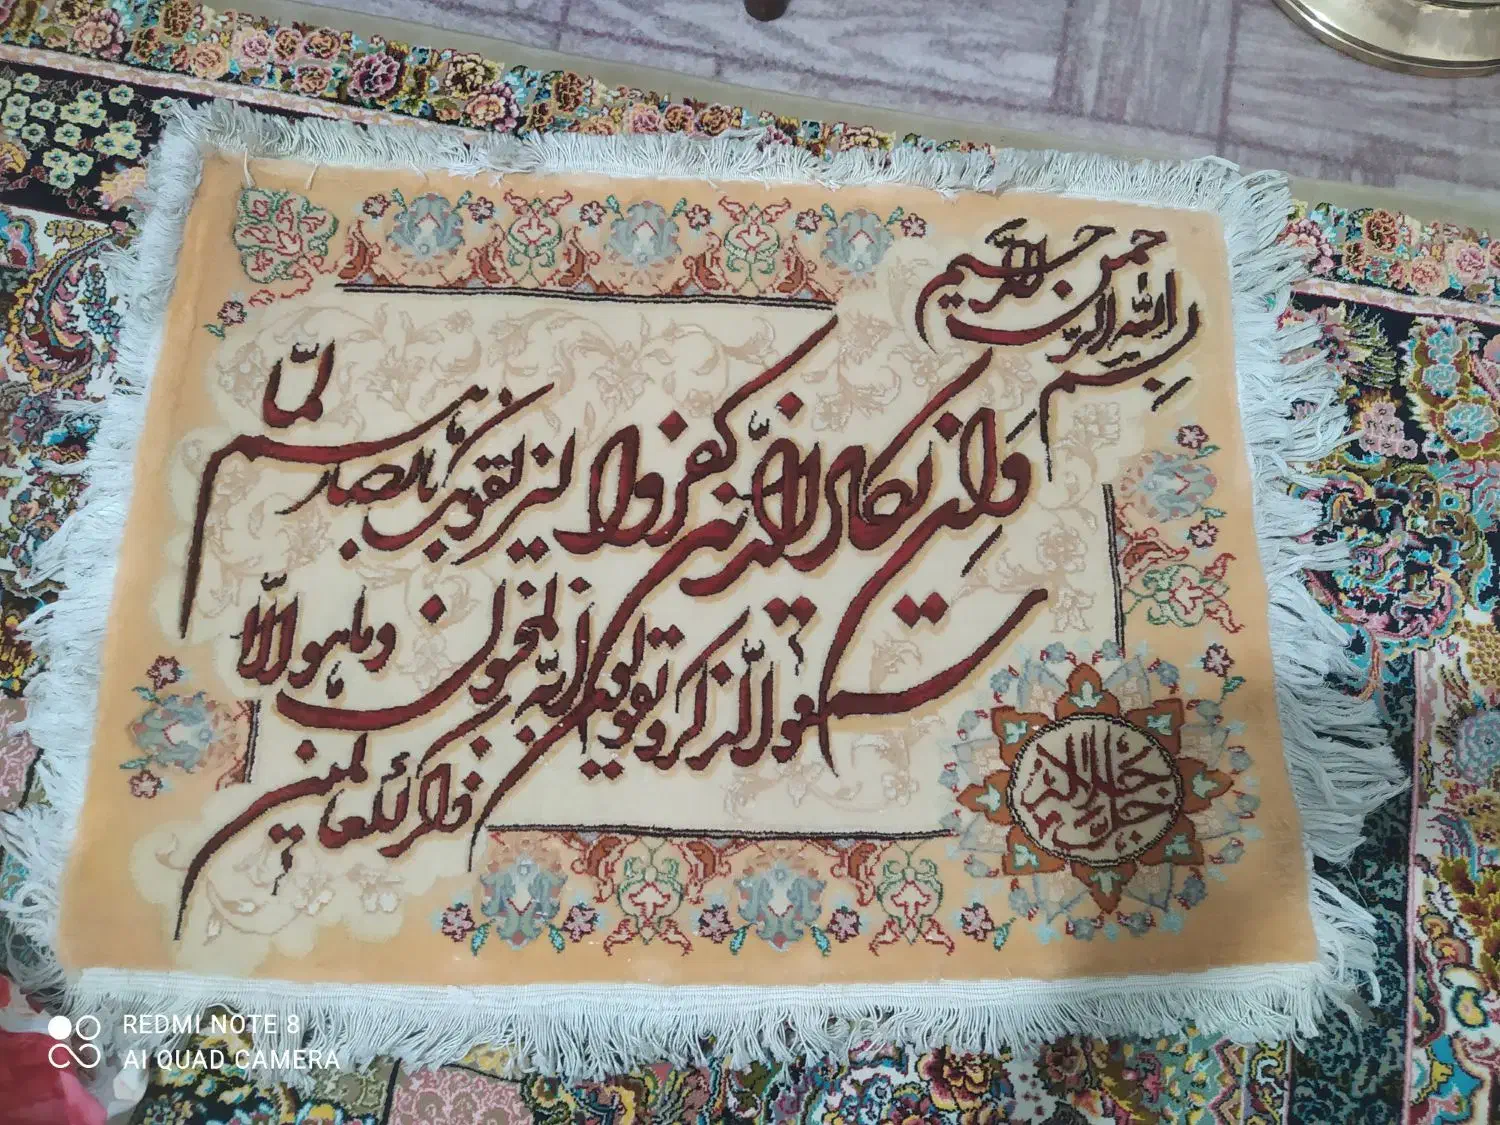 بسم الله الرحمن الرحیم
وَاِن یکاد الذین کفروا لیزلقونک بابصارهم لمّا
سمعوا الذکر و یقولون انه لمجنون و ما هو الا
ذکر للعالمین
جل جلاله
REDMI NOTE 8
AI QUAD CAMERA